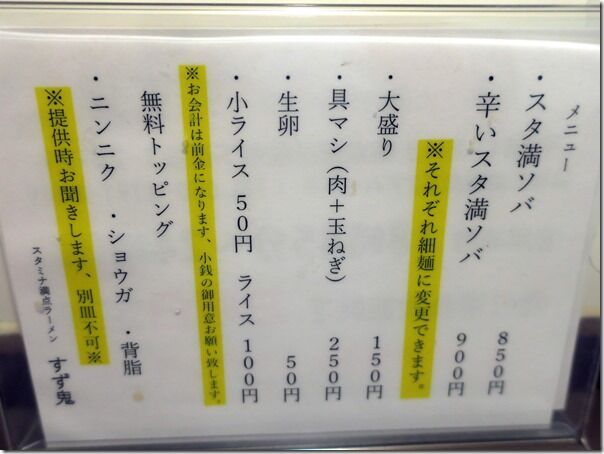 メニュー
・スタ満ソバ 850円
・辛いスタ満ソバ 900円
※それぞれ細麺に変更できます。
・大盛り 150円
・具マシ（肉＋玉ねぎ） 250円
・生卵 50円
・小ライス 50円 ライス 100円
※お会計は前金になります、小銭の御用意お願い致します。
無料トッピング
・ニンニク ・ショウガ ・背脂
※提供時お聞きします、別皿不可※
スタミナ満点ラーメン すず鬼